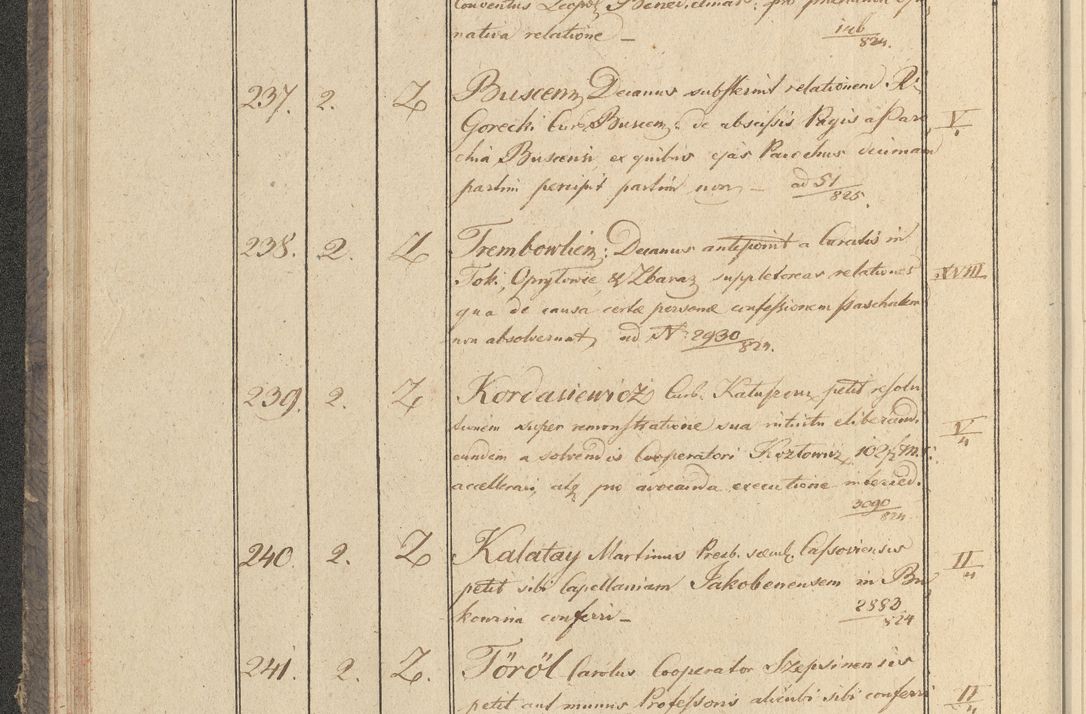 Conventus Leopol. Benedictinar: pro
nativa relatione —
824.
237. 2. Z Buscen. Decanus substernit relationem R.
Gorecki Cur. Buscen. de abscissis Pagis a Paro V
chia Buscensi ex quibus ejas Parochus decimam
partim percipit partim non — ad 51/825.
238. 2. Z Trembowlien: Decanus anteponit a Curatis in
Tok., Opryłowce, & Zbaraz suppletoreas relationes XVIII
qua de causa certæ personæ confessionem paschalem
non absolverunt, ad N: 2930/824.
239. 2. Z Kordasiewicz Curb. petit resolu
tionem super remonstratione sua intuitu eliberand. V/4
eundem a solvendis Cooperatori Koztowicz 102 f
accellerari, atq pro avocanda executione interied.
3090/824
240. 2. Z Kalatay Martinus Presb. sæcul. Cassoviensis II/4
petit sibi Capellaniam Jakobenensem in Bu
kowina conferri — 2883/824
241. 2. Z. Töröl Carolus Cooperator Szepsinensis
petit aut munus Professoris alicubi sibi conferri II/4